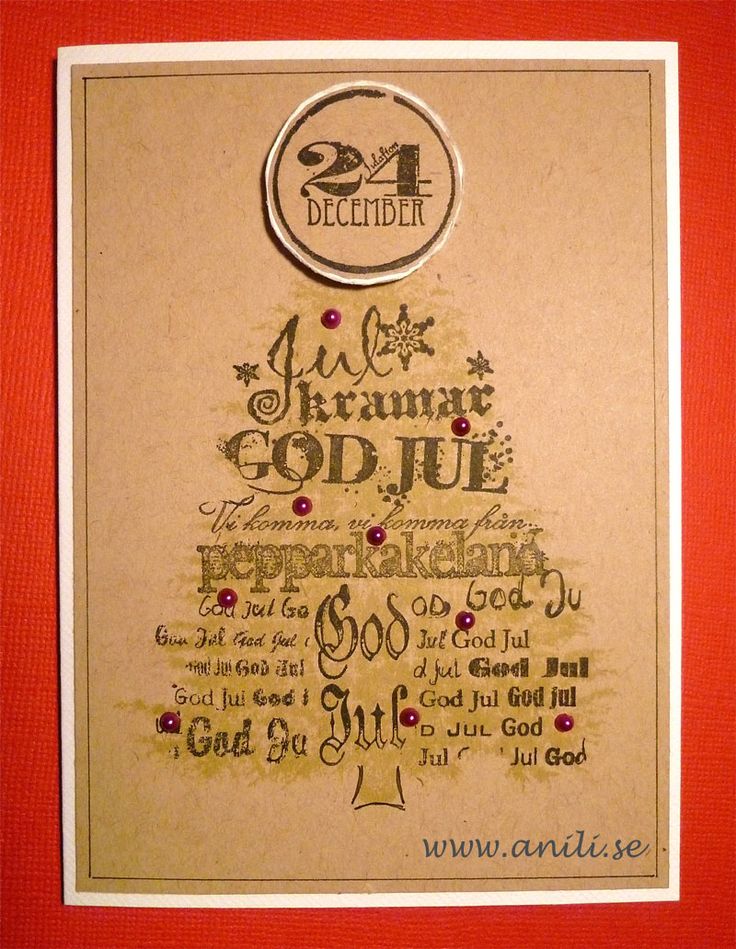 24
Julafton
DECEMBER
Jul
kramar
GOD JUL
Vi komma, vi komma från...
pepparkakeland
God Jul Go God OD God Ju
God Jul God Jul Jul God Jul
God Jul God Jul d Jul God Jul
God Jul God Jul God Jul God jul
God Ju D JUL God
Jul God Jul God
www.anili.se